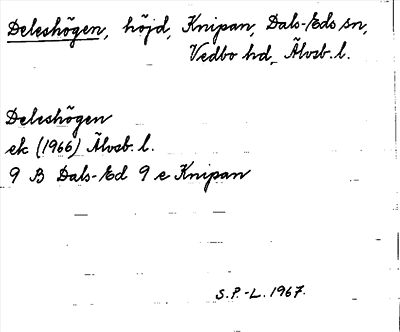 Deleshögen, höjd, Knipan, Dals-Eds sn,
Vedbo hd, Älvsb. l.
Deleshögen
ek (1966) Älvsb. l.
9 B Dals-Ed 9 e Knipan
S.P.-L. 1967.